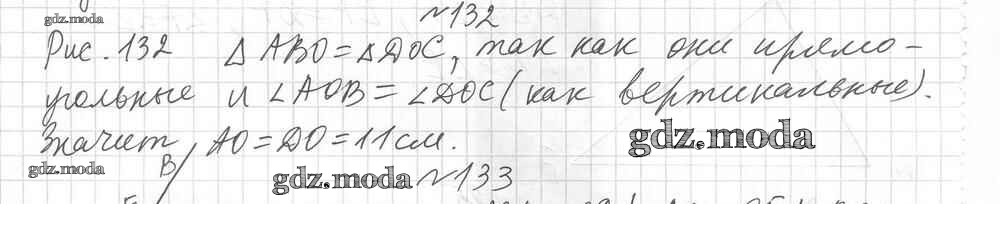 №132
gdz.moda
Рис. 132 △ABO = △DOC, так как они прямо-
угольные и ∠AOB = ∠DOC (как вертикальные).
Значит, AO = DO = 11 см.
gdz.moda
gdz.moda
B
gdz.moda
№133